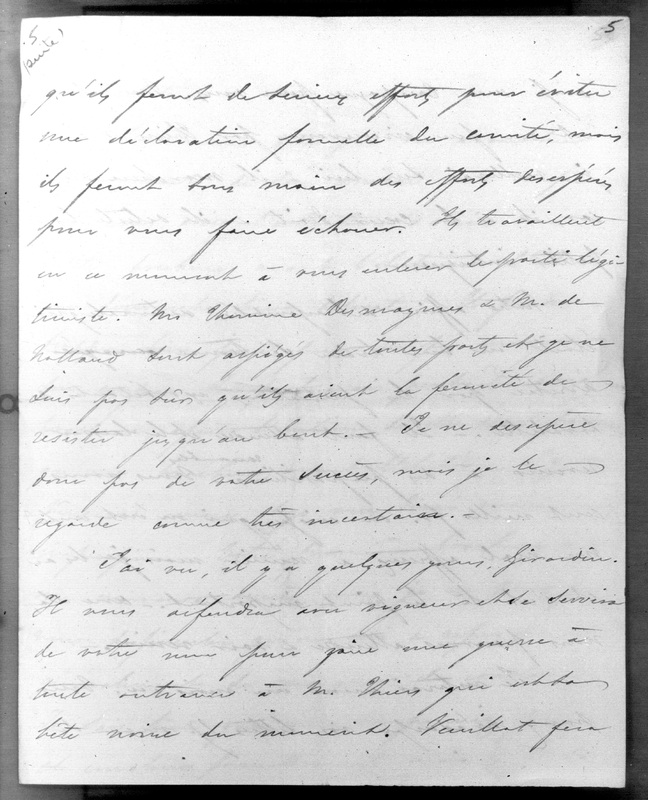 5 (suite) 5
qu'ils feront de sérieux efforts pour éviter
une déclaration formelle du comité, mais
ils feront sous main des efforts désespérés
pour vous faire échouer. Ils travaillent
en ce moment à vous enlever le parti légi-
timiste. Mrs Desmagnes & M. de
sont assiégés de toutes parts et je ne
suis pas sûr qu'ils aient la fermeté de
résister jusqu'au bout. — Je ne désespère
donc pas de votre succès, mais je le
regarde comme très incertain. —
J'ai vu, il y a quelques jours, Girardin.
Il vous défendra avec vigueur et se servira
de votre nom pour faire une guerre à
toute outrance à M. Thiers qui est sa
bête noire du moment. Veuillot fera